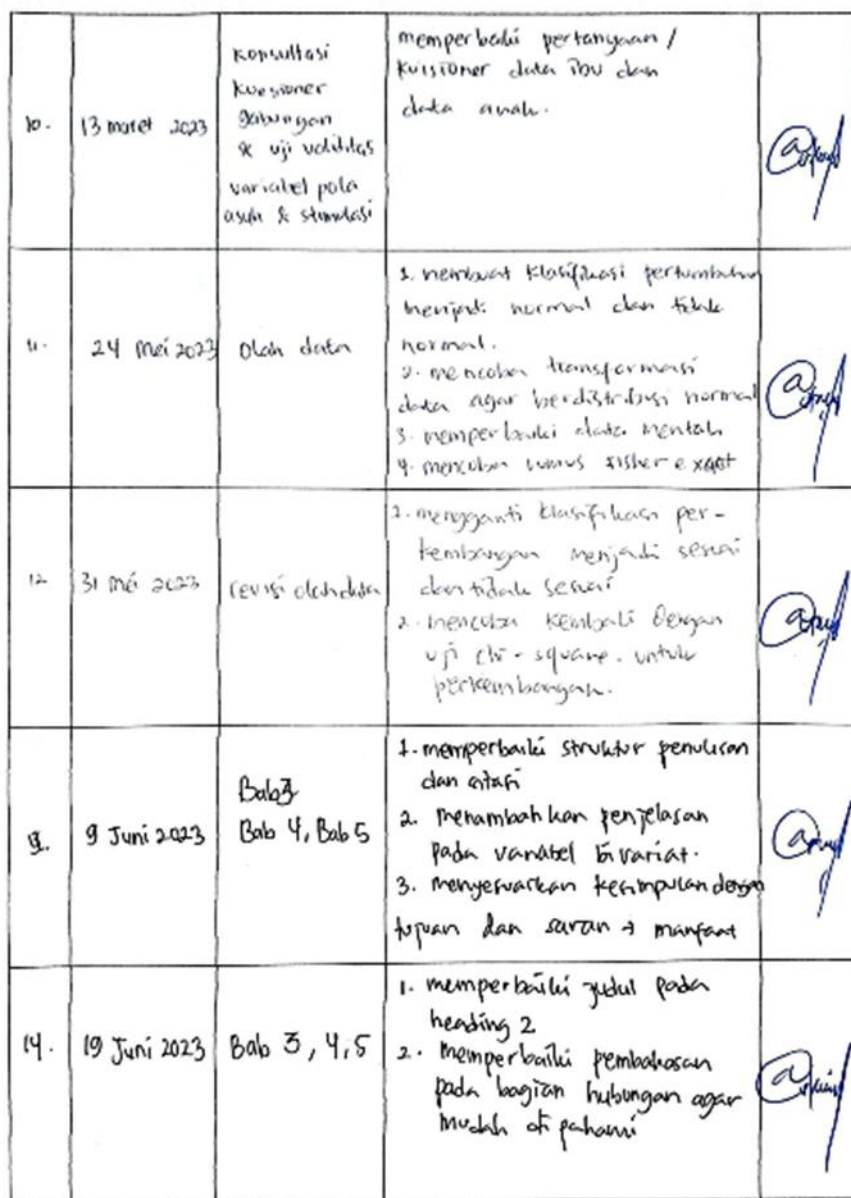 10.
13 maret 2023
Konsultasi
Kuesioner
gabungan
& uji validitas
variabel pola
asuh & stimulasi
memperbaiki pertanyaan /
kuisioner data ibu dan
data anak.
11.
24 Mei 2023
Olah data
1. membuat klasifikasi pertumbuhan
menjadi normal dan tidak
normal.
2. mencoba transformasi
data agar berdistribusi normal
3. memperbaiki data mentah
4. mencoba rumus fisher exact
12
31 Mei 2023
revisi olah data
1. mengganti klasifikasi per-
kembangan menjadi sesuai
dan tidak sesuai
2. mencoba kembali dengan
uji chi-square. untuk
perkembangan.
9 Juni 2023
Bab 3
Bab 4, Bab 5
1. memperbaiki struktur penulisan
dan sitasi
2. menambahkan penjelasan
pada variabel bivariat.
3. menyesuaikan kesimpulan dengan
tujuan dan saran → manfaat
14.
19 Juni 2023
Bab 3, 4, 5
1. memperbaiki judul pada
heading 2
2. memperbaiki pembahasan
pada bagian hubungan agar
mudah di pahami